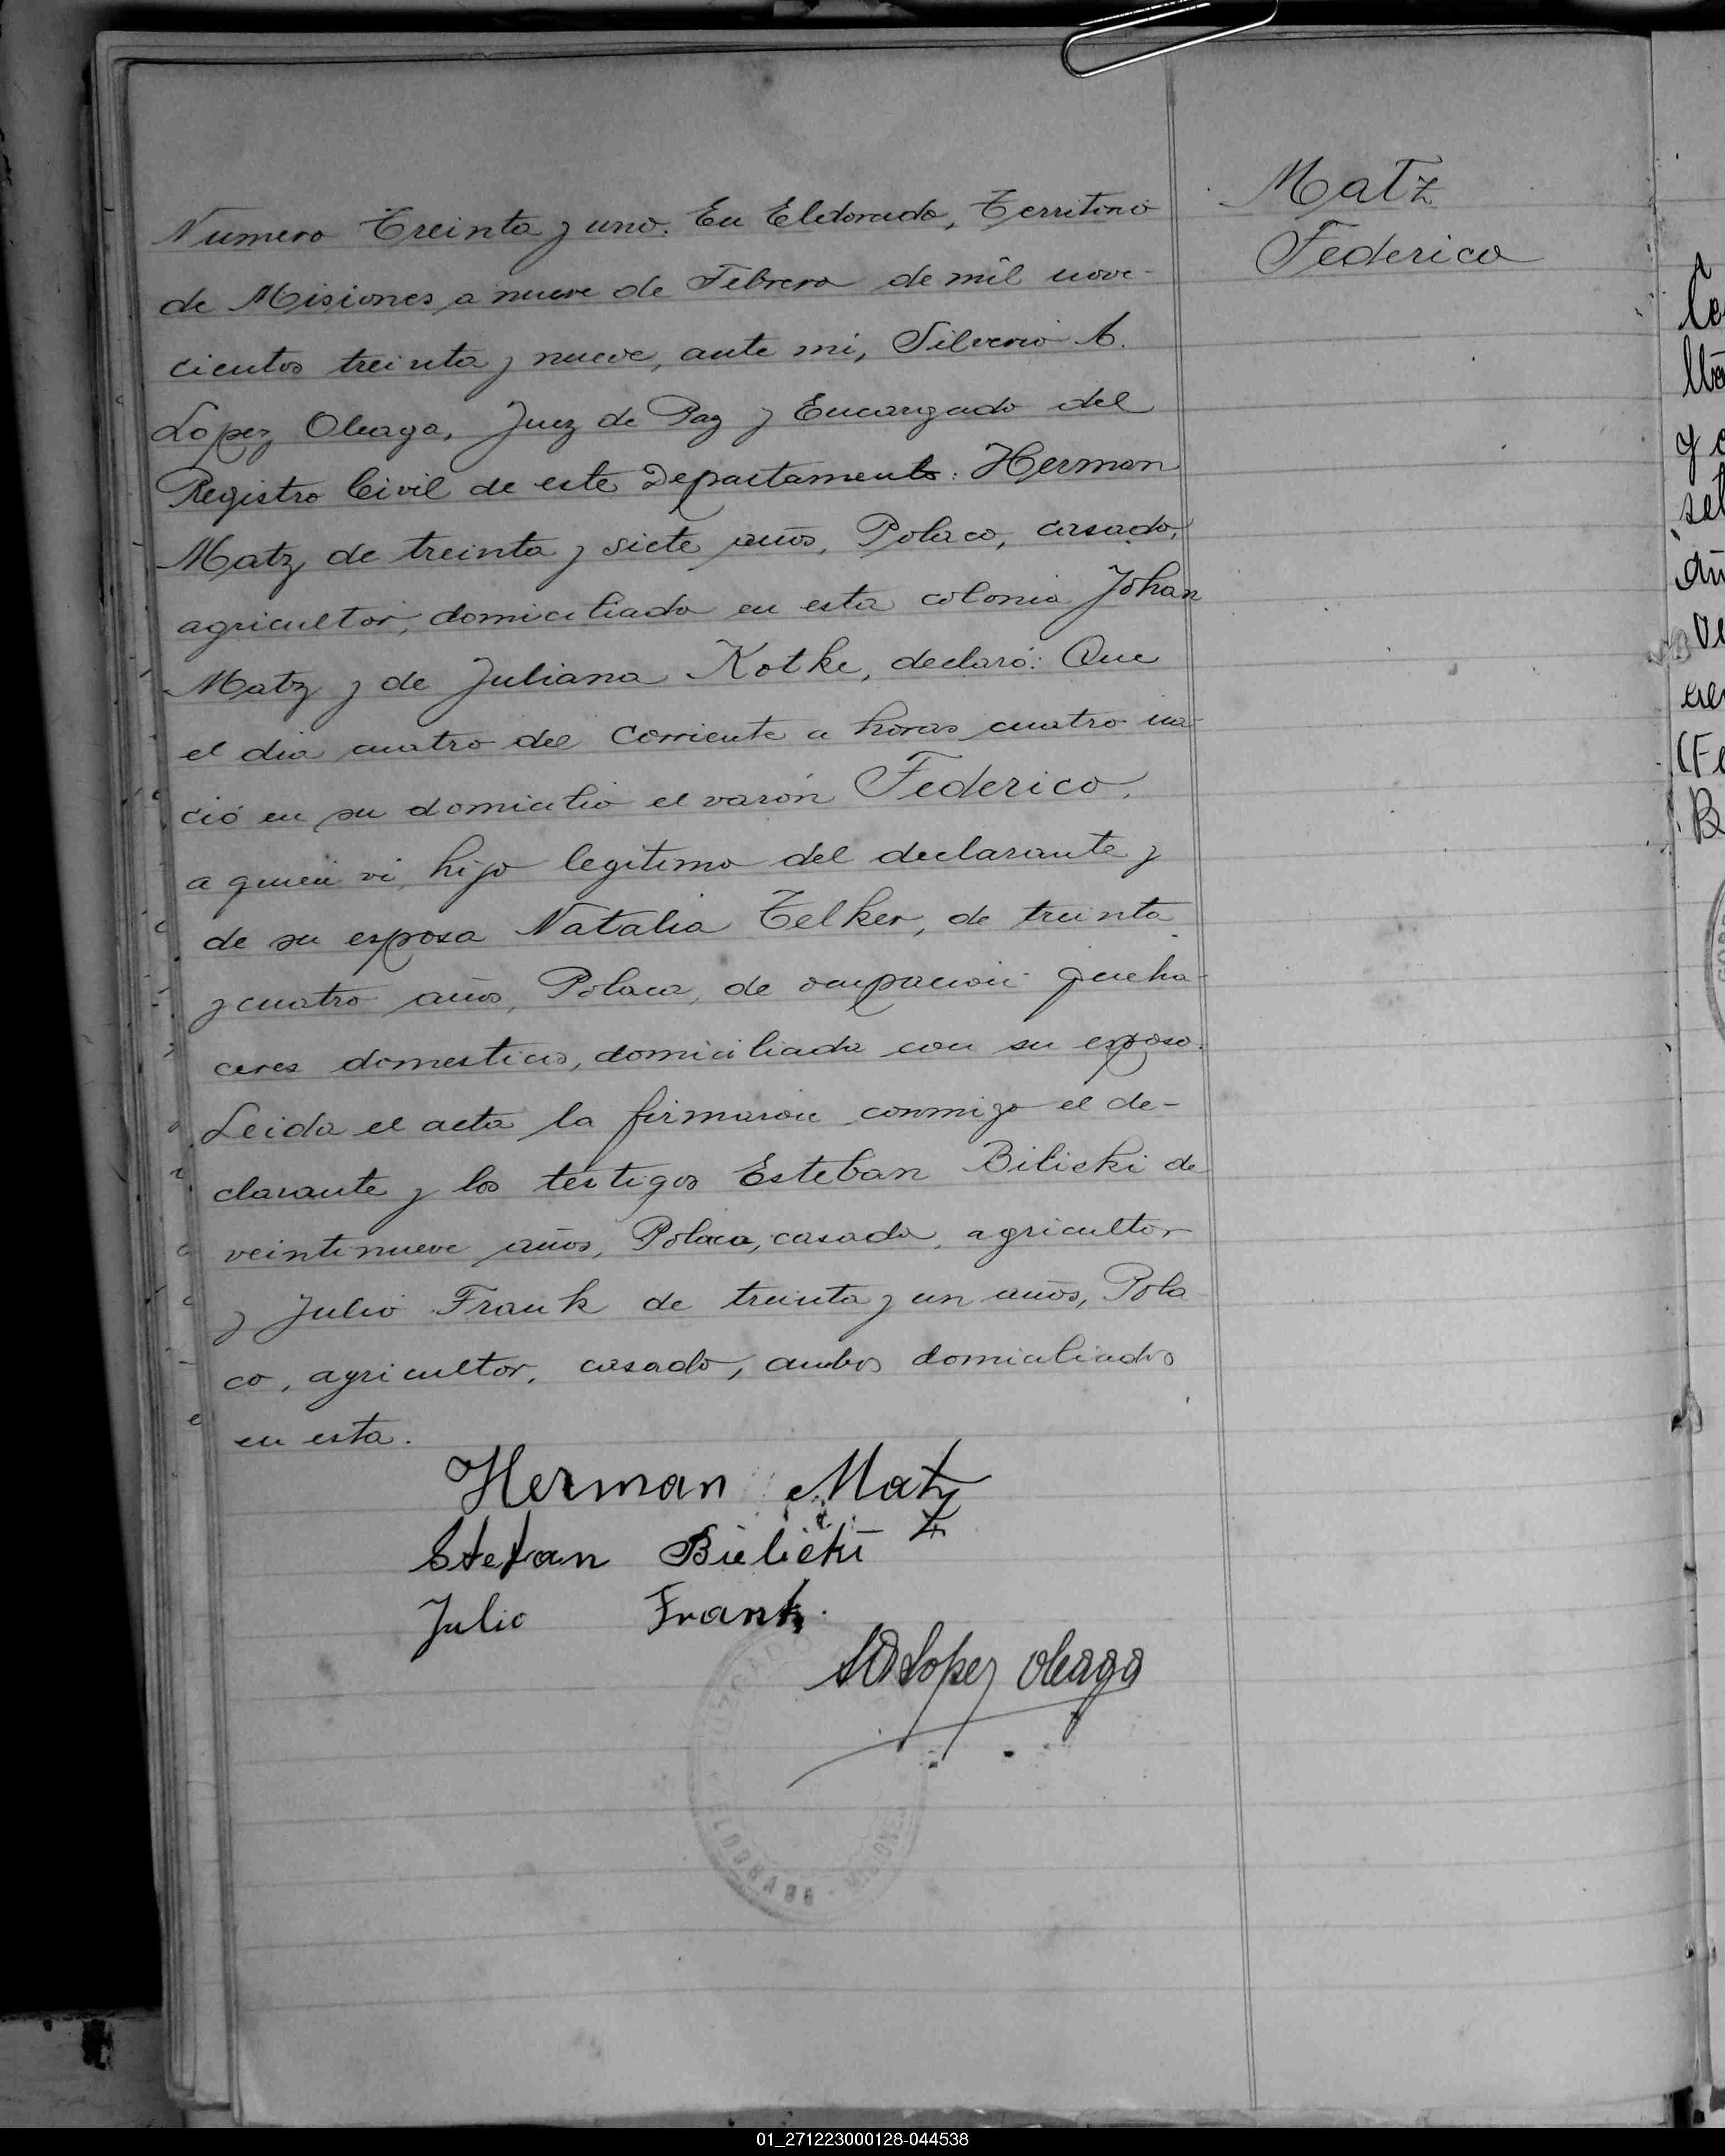 Matz
Federico
Numero Treinta y uno. En Eldorado, Territorio
de Misiones a nueve de Febrero de mil nove-
cientos treinta y nueve, ante mi, Silverio A.
Lopez Oleaga, Juez de Paz y Encargado del
Registro Civil de este Departamento: Herman
Matz de treinta y siete años, Polaco, casado,
agricultor, domiciliado en esta colonia Johan
Matz y de Juliana Kotke, declaró: Que
el dia cuatro del corriente a horas cuatro na-
ció en su domicilio el varón Federico,
a quien vi, hijo legitimo del declarante y
de su esposa Natalia Telker, de treinta
y cuatro años, Polaca, de ocupación queha-
ceres domesticos, domiciliada con su esposo.
Leida el acta la firmaron conmigo el de-
clarante y los testigos Esteban Bilicki de
veintinueve años, Polaco, casado, agricultor
y Julio Frank de treinta y un años, Pola
co, agricultor, casado, ambos domiciliados
en esta.
Herman Matz
Stefan Bielicki
Julio Frank.
SA Lopez Oleaga
JUZGADO
ELDORADO - MISIONES
01_271223000128-044538